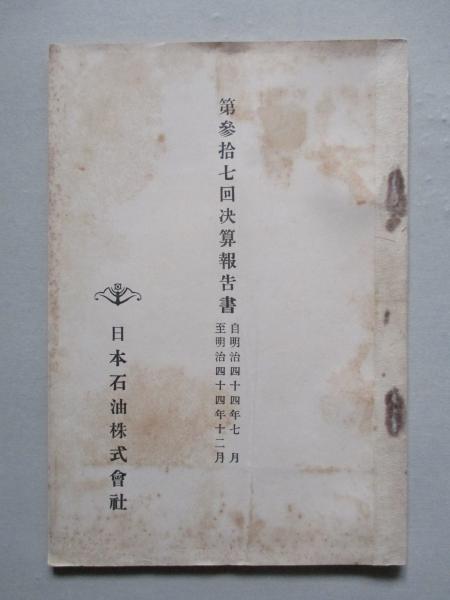 第參拾七回决算報告書
自明治四十四年七月
至明治四十四年十二月
日本石油株式會社